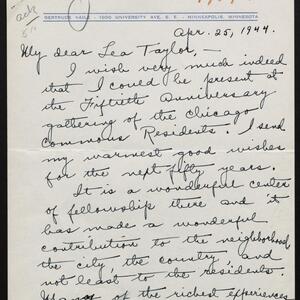 GERTRUDE VAILE - 1200 UNIVERSITY AVE. S. E. - MINNEAPOLIS, MINNESOTA
ack
Apr. 25, 1944.
My dear Lea Taylor, —
I wish very much indeed
that I could be present at
the Fiftieth Anniversary
gathering of the Chicago
Commons Residents. I send
my warmest good wishes
for the next fifty years.
It is a wonderful center
of fellowship there and it
has made a wonderful
contribution to the neighborhood,
the city the country and
not least to the residents.
Many of the richest experiences